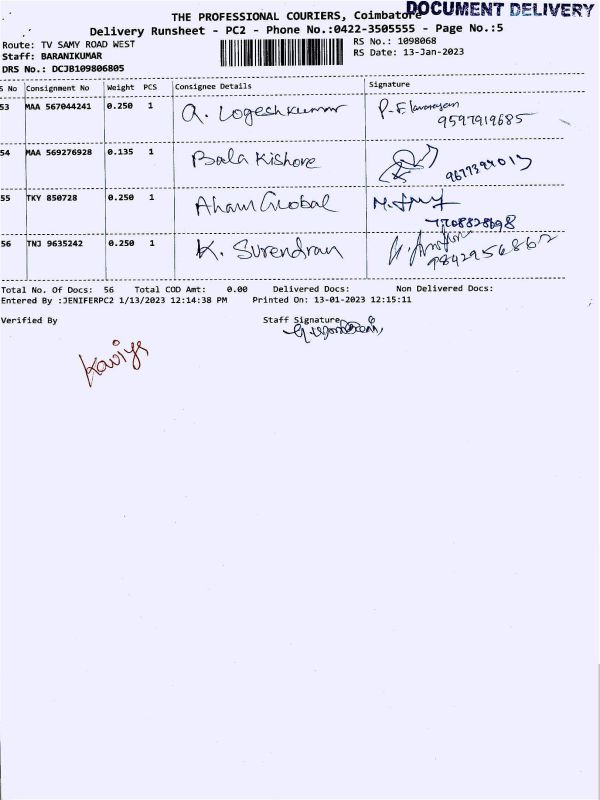 DOCUMENT DELIVERY
THE PROFESSIONAL COURIERS, Coimbatore
Delivery Runsheet - PC2 - Phone No.:0422-3505555 - Page No.:5
Route: TV SAMY ROAD WEST
RS No.: 1098068
Staff: BARANIKUMAR
RS Date: 13-Jan-2023
DRS No.: DCJB109806805
S No Consignment No Weight PCS Consignee Details Signature
53 MAA 567044241 0.250 1 Q. Logeshkumar
9597919685
54 MAA 569276928 0.135 1 Bala Kishore
55 TKY 850728 0.250 1 Aham Global
7708828698
56 TNJ 9635242 0.250 1 K. Surendran
9842956862
Total No. Of Docs: 56 Total COD Amt: 0.00 Delivered Docs: Non Delivered Docs:
Entered By :JENIFERPC2 1/13/2023 12:14:38 PM Printed On: 13-01-2023 12:15:11
Verified By Staff Signature
Kaviya